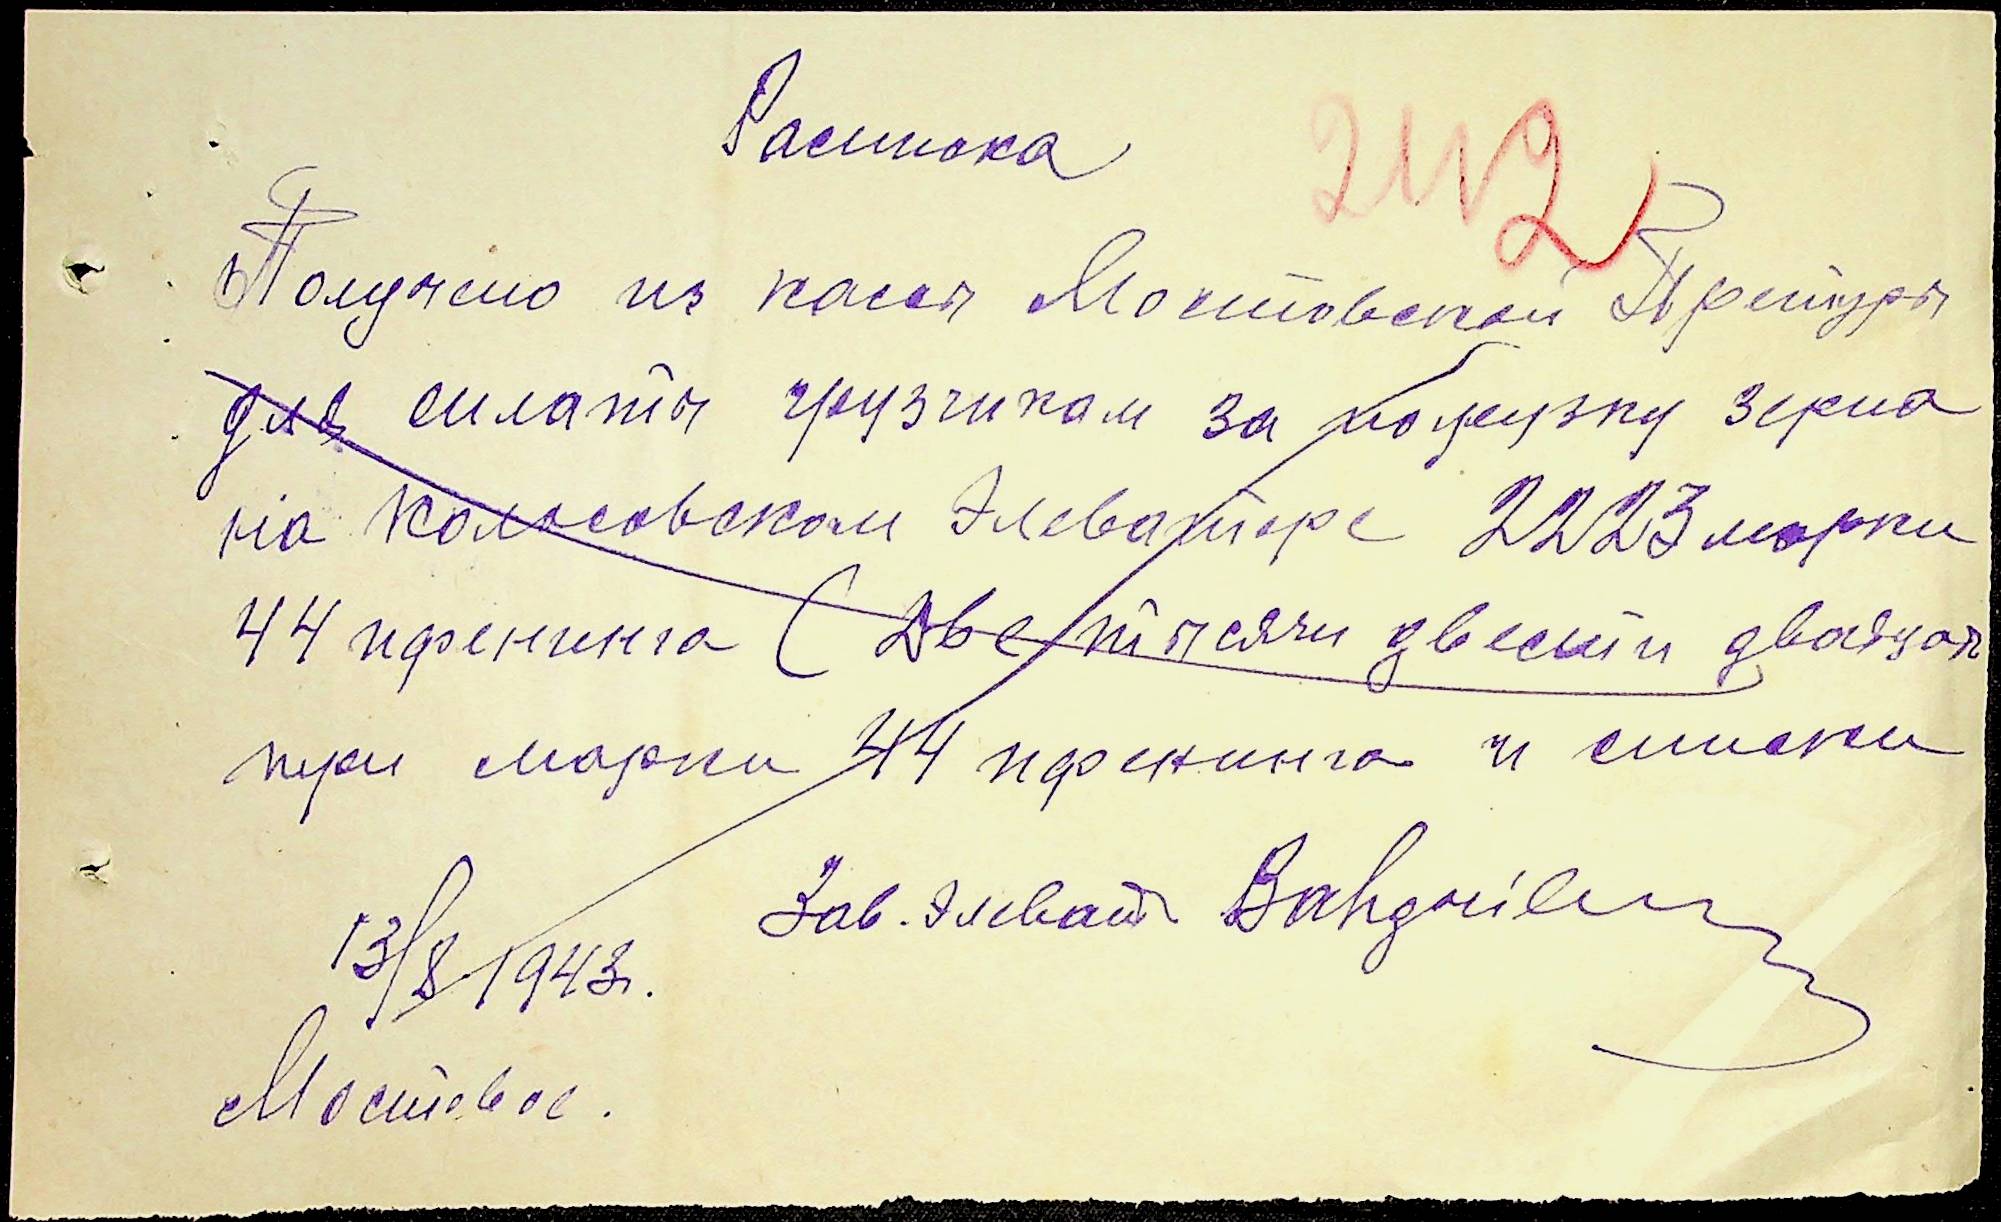 Расписка
Получено из кассы Мостовской Претуры
для оплаты грузчикам за погрузку зерна
на Колосовском Элеваторе 2223 марки
44 пфеннинга (две тысячи двести двадцат
три марки 44 пфеннинга и списки
Зав. Элеват
13/8 1943г.
Мостовое.